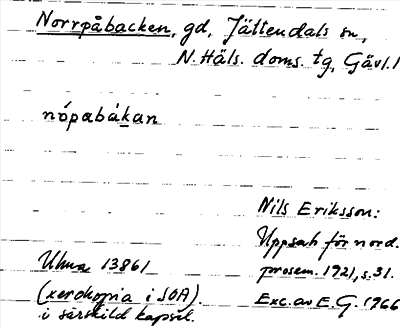 Norrpåbacken, gd, Jättendals sn,
N. Häls. doms. tg, Gävl. l
nópabákan
Nils Eriksson:
Uppsats för nord.
prosem. 1921, s. 31.
Exc. av E. G. 1966
Uhma 13861
(xerokopia i SOA).
i särskild kapsel.